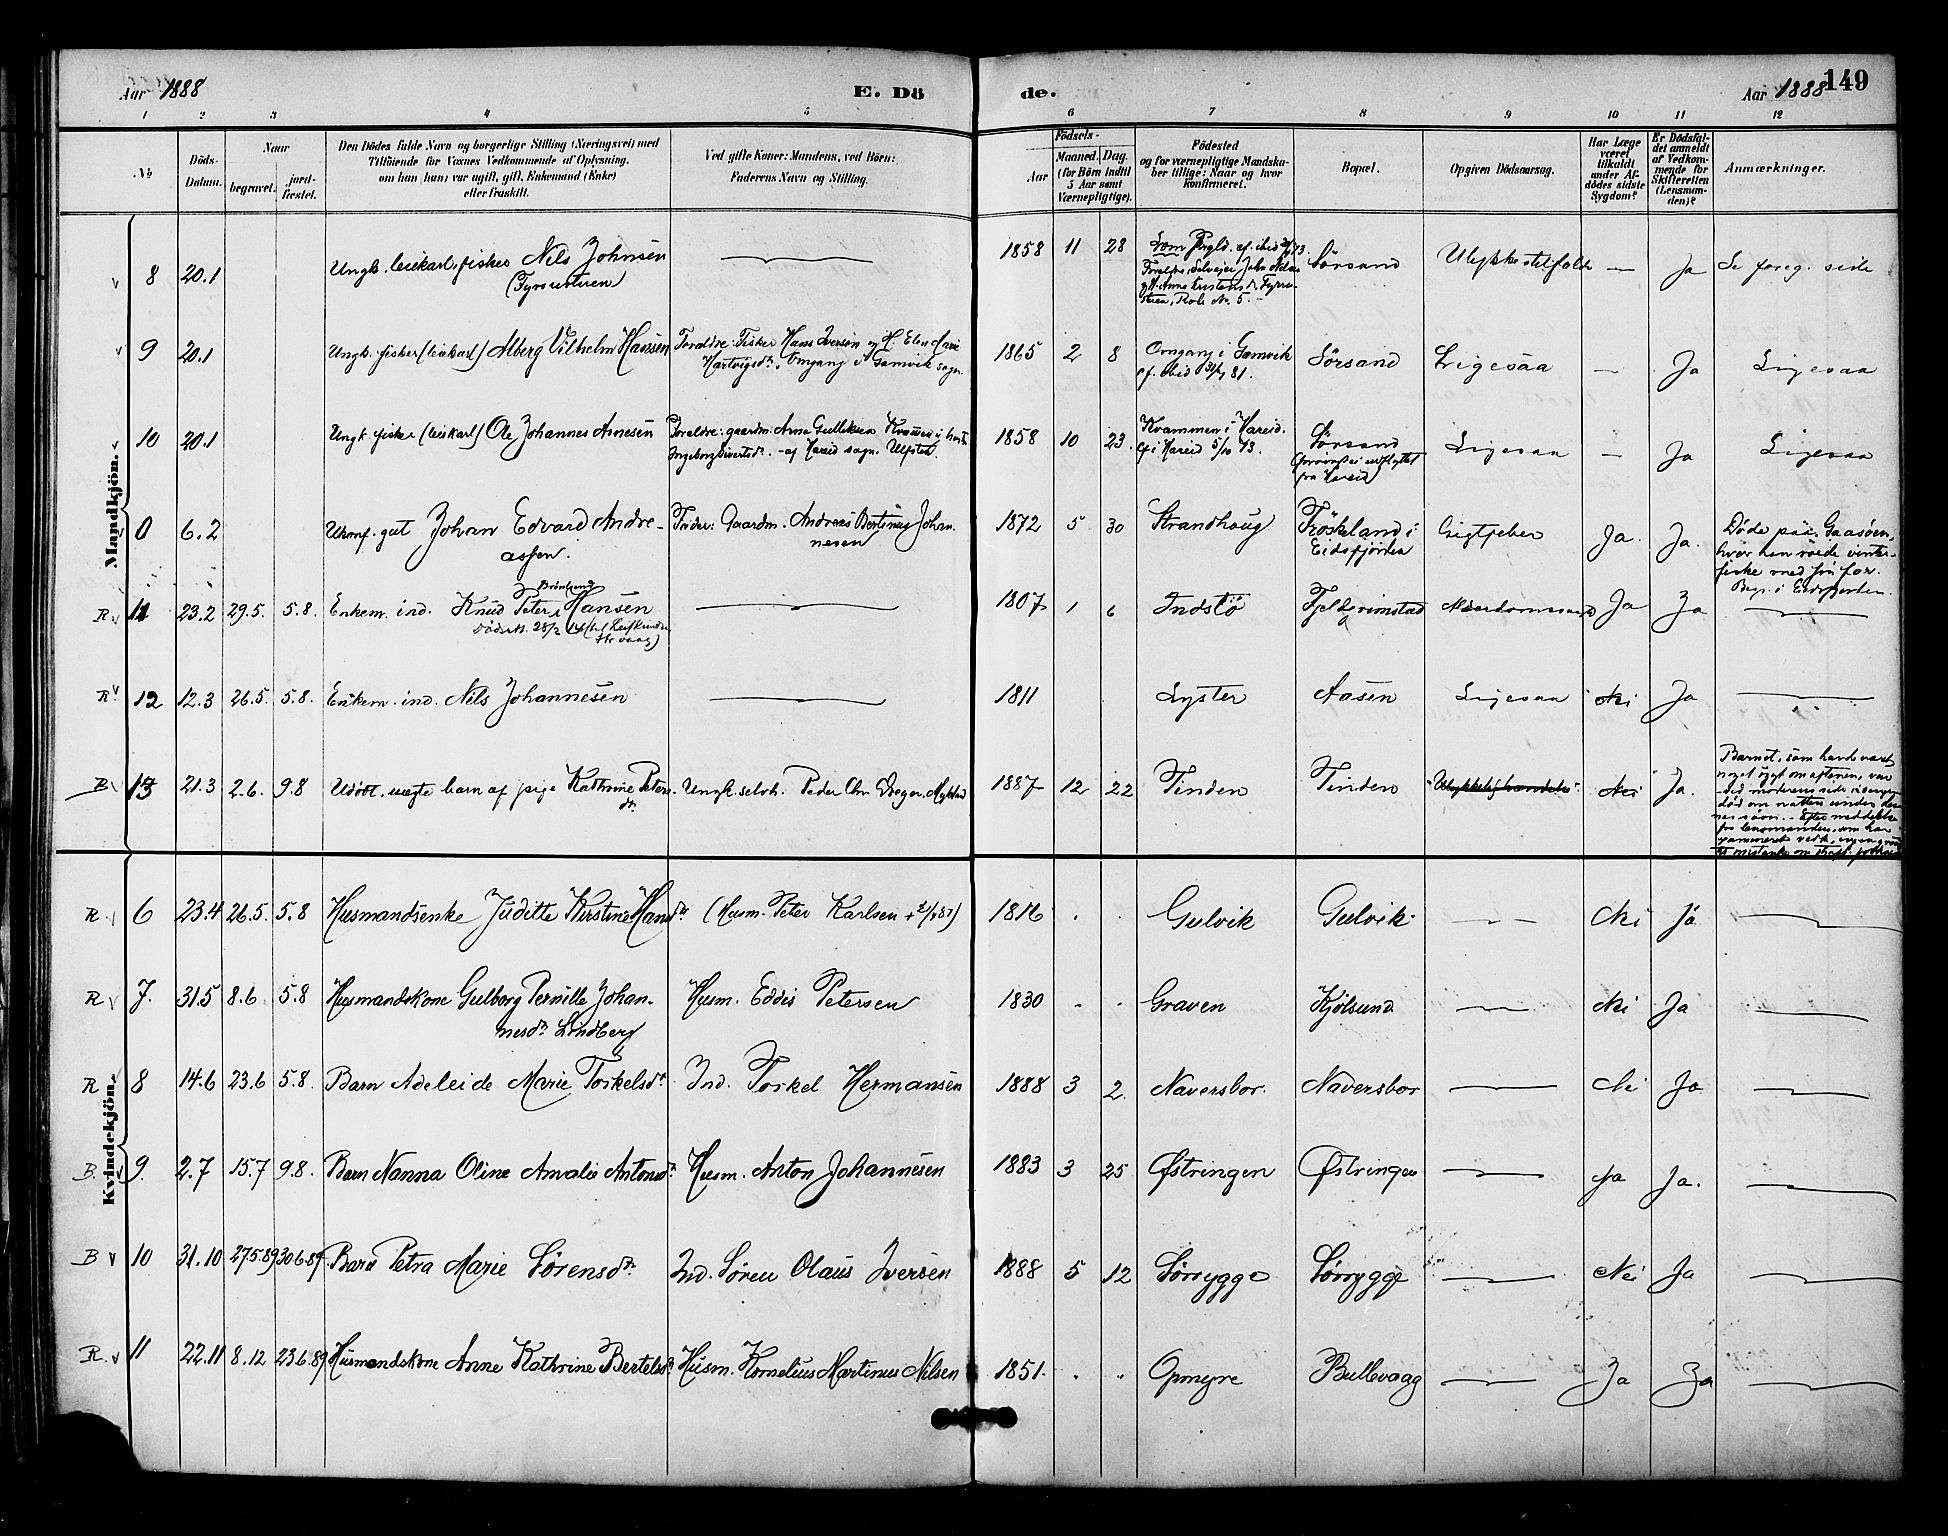 Aar 1888 E. Dö de. Aar 1888 149
1 2 3 4 5 6 7 8 9 10 11 12
№ Döds-Datum. Naar begravet. jordfæstet. Den Dödes fulde Navn og borgerlige Stilling (Næringsvei) med Tilföiende for Voxnes Vedkommende af Oplysning, om han (hun) var ugift, gift, Enkemand (Enke) eller fraskilt. Ved gifte Koner: Mandens, ved Börn: Faderens Navn og Stilling. Födsels- Aar Maaned. Dag. (for Börn indtil 5 Aar samt Værnepligtige). Födested og for værnepligtige Mandskaber tillige: Naar og hvor konfirmeret. Bopæl. Opgiven Dödsaarsag. Har Læge været tilkaldt under Afdödes sidste Sygdom? Er Dödsfaldet anmeldt af Vedkommende for Skifteretten (Lensmanden)? Anmærkninger.
Mandkjön.
8 20.1 Ungk. leiekarl, fisker Nils Johnsen 1858 11 28 Sörsand Ulykkestilfælde — Ja Se foreg. side
9 20.1 Ungk. fisker (leiekarl) Alberg Vilhelm Hansen Forældre: Fisker Hans Iversen og H. Elen Marie
Hartvigsdr. Omgang i Gamvik sogn. 1865 2 8 Omgang i Gamvik
cf. ibid 81. Sörsand Ligesaa — Ja Ligesaa
10 20.1 Ungk. fisker (leiekarl) Ole Johannes Arnesen Forældre: gaardm. Arne Gulliksen
Ingeborg Sivertsdr. af Hareid sogn. Ulfsten. 1858 10 23. Kvammen i Hareid.
cf i Hareid 5/10 73. Sörsand
fra Hareid) Ligesaa — Ja Ligesaa
0 6.2 Ukonf. gut Johan Edvard Andre-
assen. Fader: Gaardm. Andreas Bertinus Johan-
nesen 1872 5 30 Strandhaug Fröskeland i
Eidsfjorden Gigtfeber Ja. Ja. Døde paa Gaasöen,
hvor han røede vinter-
fiske med sin far.
Bugn. i Eidsfjorden.
R 11 23.2 29.5. 5.8. Enkem. ind. Knud Peter Hansen 1807 1 6 Indstö Fjeldgrimstad Alderdomssvagh. Ja Ja
R 12 12.3 26.5. 5.8. Enkem. ind. Nils Johannesen 1811 Lyster Aasen Ligesaa Nei Ja
B 13 21.3 2.6. 9.8 Udöbt uægte barn af pige Kathrine Peters-
dr. Ungk. selvh. Peder Chr. 1887 12 22 Tinden Tinden Nei Ja. Barnet, som havde været
noget sygt om aftenen, var
ved moderens side i sengen
död om natten under den-
nes søvn. - Efter meddelelse
fra lensmanden, som har
Kvindekjön.
R 6 23.4 26.5. 5.8 Husmandsenke Juditte Kirstine Hansdr. (Husm. Peter Karlsen 1816 . . Gulvik Gulvik — Nei Ja
R 7. 31.5 8.6 5.8 Husmandskone Gulborg Pernille Johan-
nesdr. Lindberg Husm. Eddis Petersen 1830 . . Graven Kjölsund — Nei Ja
R 8 14.6 23.6 5.8. Barn Adeleide Marie Torkelsdr. Ind. Torkel Hermansen 1888 3 2. Naversbor. Naversbor — Nei Ja
B. 9. 2.7 15.7 9.8. Barn Nanna Oline Amalie Antonsdr. Husm. Anton Johannesen 1883 3 25 Østringen Østringen — Ja Ja.
B 10 31.10 27.5.89 30.6.89. Barn Petra Marie Sörensdr. Ind. Sören Olaus Iversen 1888 5 12 Sörrygge Sörrygge — Nei Ja
R. 11 22.11 8.12 23.6.89 Husmandskone Anne Kathrine Bertelsdr. Husm. Kornelius Martinus Nilsen 1851. . . Opmyre Bullevaag — Ja Ja